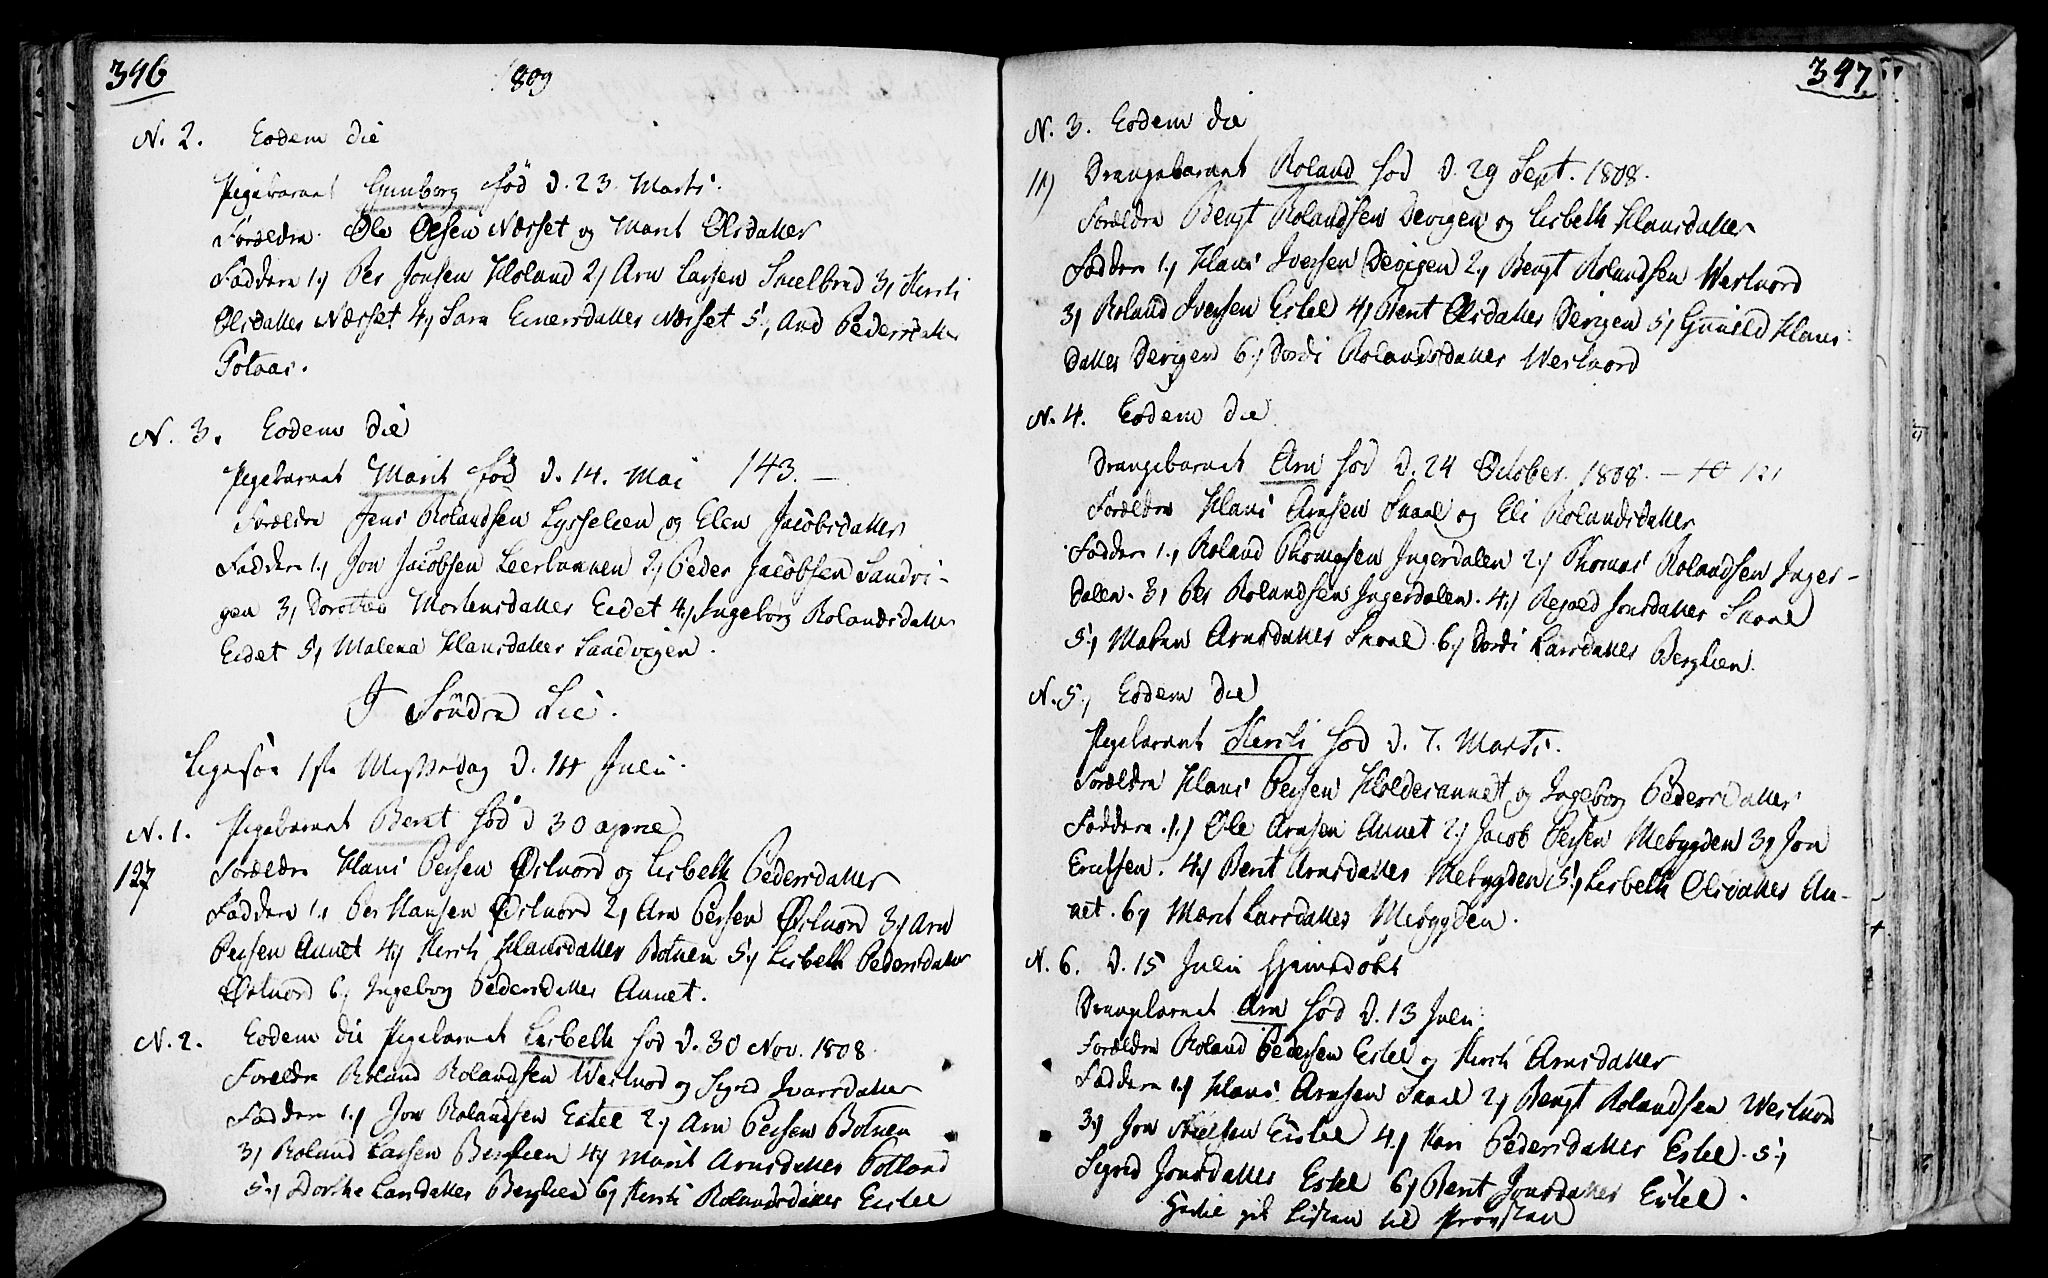 346
1809
N. 2. Eodem die
Pigebarnet Gunborg fød d. 23. Marts.
Forældre Ole Olsen Næsset og Marit Olsdatter
Faddere 1.) Per Jonsen Holand 2) Arn Larsen 3) Kersti
Olsdatter Næsset 4) Sara Einersdatter Næsset 5.) And Pedersdatter
Totaas.
N. 3. Eodem die
Pigebarnet Marit fød d. 14. Mai 143. —
Forældre Jens Rolandsen Lysselien og Elen Jacobsdatter
Faddere 1.) Jon Jacobsen 2.) Peder Jacobsen Sandvi-
gen 3) Dorothea Mortensdatter Eidet 4.) Ingeborg Rolandsdatter
Eidet 5) Malena Hansdatter Sandvigen.
I Søndre Lie.
Ligesøe 1ste Messedag d. 14 Juli.
N. 1. Pigebarnet Berit fød d 30 april
127 Forældre Hans Persen Østnord og Lisbeth Pedersdatter
Faddere 1.) Per Hansen Østnord 2) Arn Persen Østnord 3.) Arn
Persen Aunet 4) Kersti Hansdatter Botnen 5.) Lisbeth Pedersdatter
Østnord 6) Ingeborg Pedersdatter Aunet.
N. 2. Eodem die Pigebarnet Lisbeth fød d. 30 Nov. 1808
Forældre Roland Rolandsen Westnord og Sigrid Ivarsdatter
Faddere 1.) Jon Rolandsen Estel 2.) Arn Persen Botnen
3) Roland Larsen Berglien 4) Marit Arnsdatter Totland
5.) Dorthe Larsdatter Berglien 6) Kersti Rolandsdatter Eistel
347
N. 3. Eodem die
11) Drengebarnet Roland fød d. 29 Sept. 1808.
Forældre Bengt Rolandsen Devigen og Lisbeth Hansdatter
Faddere 1.) Hans Iversen Devigen 2.) Bengt Rolandsen Westnord
3) Roland Iversen Estel 4) Berit Olsdatter Devigen 5) Gunild Hans-
datter Devigen 6.) Dordi Rolandsdatter Westnord
N. 4. Eodem die
Drengebarnet Arn fød d. 24 October. 1808. — 121
Forældre Hans Arnsen Skael og Eli Rolandsdatter
Faddere 1.) Roland Thomesen Ingerdalen 2.) Thomas Rolandsen Inger-
dalen. 3) Per Rolandsen Ingerdalen. 4.) Jonsdatter Skael
5.) Malen Arnsdatter Skael 6.) Dordi Larsdatter Berglien.
N. 5.) Eodem die
Pigebarnet Kersti fød d. 7. Marts.
Forældre Hans Persen Holdesaunet og Ingeborg Pedersdatter
Faddere. 1.) Ole Arnsen Aunet 2.) Jacob Persen Mebygden 3) Jon
Ericksen. 4.) Berit Arnsdatter Mebygden 5.) Lisbeth Olsdatter Au-
net. 6) Marit Larsdatter Mebygden.
N. 6. D. 15 Juli Hjemedøbt
Drengebarnet Arn fød d. 13 Juli
Forældre Roland Pedersen Estel og Kersti Arnsdatter
Faddere 1.) Hans Arnsen Skael 2.) Bengt Rolandsen Westnord
3.) Jon Eistel 4.) Kari Pedersdatter Estel. 5.)
Sigrid Jonsdatter Estel 6.) Berit Jonsdatter Eistel.
Hertil gik Listen til Provsten